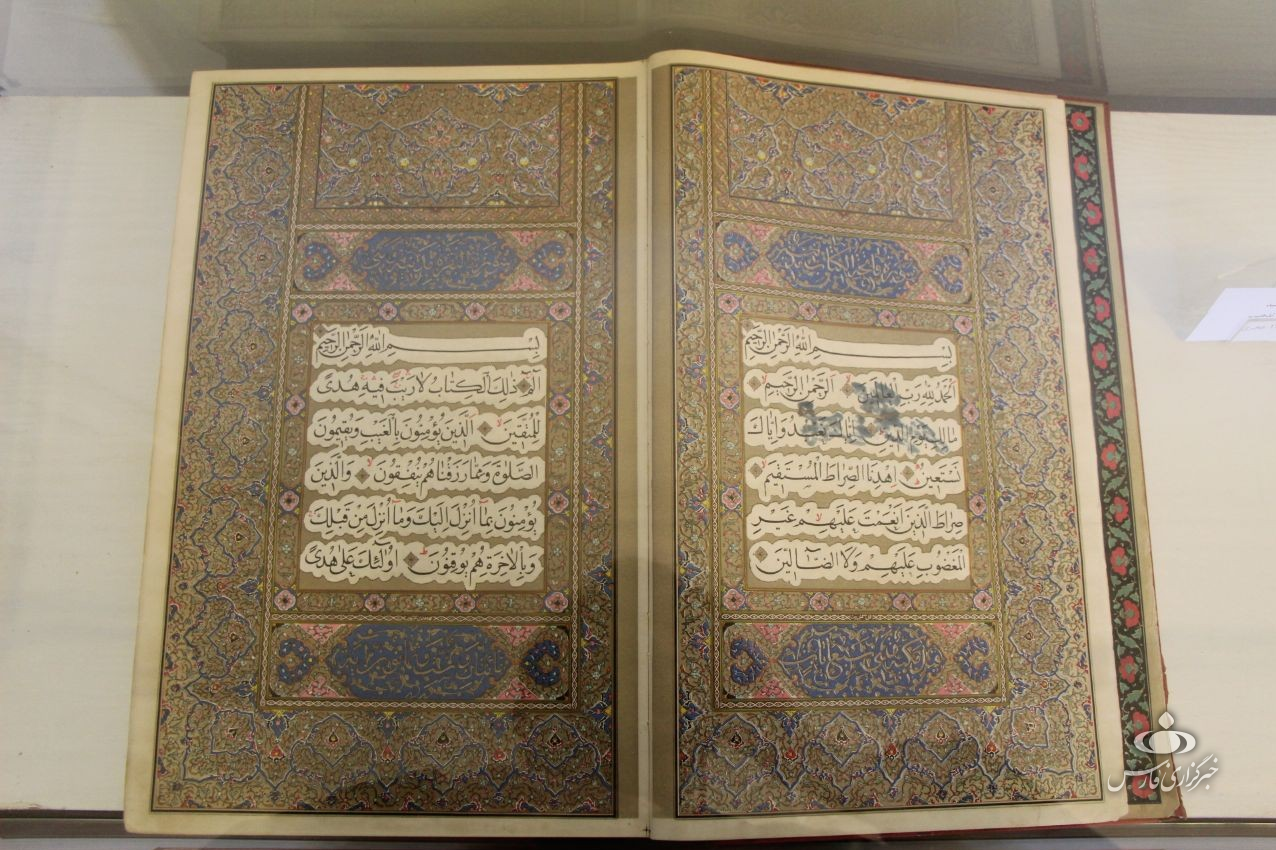 سورة فاتحة الكتاب
بِسْمِ اللهِ الرَّحْمنِ الرَّحيمِ
اَلْحَمْدُ لِلّهِ رَبِّ الْعالَمينَ الرَّحْمنِ الرَّحيمِ
مالِكِ يَوْمِ الدّينِ اِيّاكَ نَعْبُدُ وَاِيّاكَ
نَسْتَعينُ اِهْدِنَا الصِّراطَ الْمُسْتَقيمَ
صِراطَ الَّذينَ اَنْعَمْتَ عَلَيْهِمْ غَيْرِ
الْمَغْضُوبِ عَلَيْهِمْ وَلَا الضّآلّينَ
بِسْمِ اللهِ الرَّحْمنِ الرَّحيمِ
الٓمٓ ذلِكَ الْكِتابُ لا رَيْبَ فيهِ هُدًى
لِلْمُتَّقينَ اَلَّذينَ يُؤْمِنُونَ بِالْغَيْبِ وَيُقيمُونَ
الصَّلوةَ وَمِمّا رَزَقْناهُمْ يُنْفِقُونَ وَالَّذينَ
يُؤْمِنُونَ بِمآ اُنْزِلَ اِلَيْكَ وَمآ اُنْزِلَ مِنْ قَبْلِكَ
وَبِالْاخِرَةِ هُمْ يُوقِنُونَ اُولٰٓئِكَ عَلى هُدًى
خبرگزاری فارس